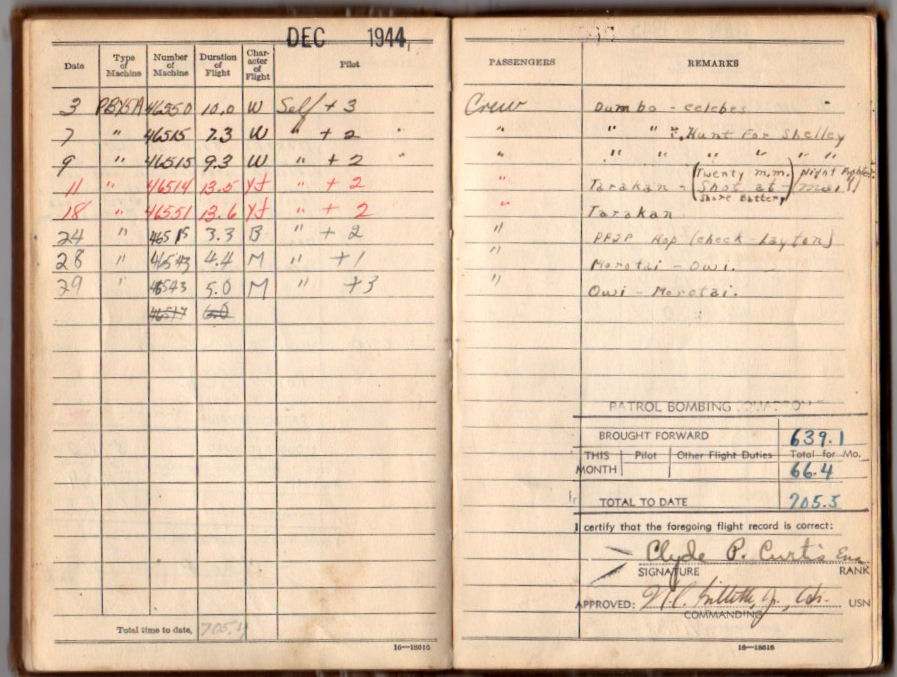 DEC 1944
Date Type of Machine Number of Machine Duration of Flight Character of Flight Pilot PASSENGERS REMARKS
3 PBY5A 46550 10.0 W Self + 3 Crew Dumbo - Celebes
7 " 46515 7.3 W " + 2 " " " & Hunt For Shelley
9 " 46515 9.3 W " + 2 " " " " " " "
11 " 46514 13.5 " + 2 " Tarakan - (Twenty m.m. Shot at - Shore Battery) Night
18 " 46551 13.6 " + 2 " Tarakan
24 " 46515 3.3 B " + 2 " Hop (check - Layton)
28 " 46543 4.4 M " +1 " Morotai - Owi.
29 " 46543 5.0 M " +3 " Owi - Morotai.
46517 6.0
PATROL BOMBING SQUADRON
BROUGHT FORWARD 639.1
THIS MONTH Pilot Other Flight Duties Total for Mo.
66.4
TOTAL TO DATE 705.5
I certify that the foregoing flight record is correct:
Clyde P. Curtis Ens
SIGNATURE RANK
APPROVED: USN
COMMANDING
Total time to date, 705.4
16—18616 16—18616